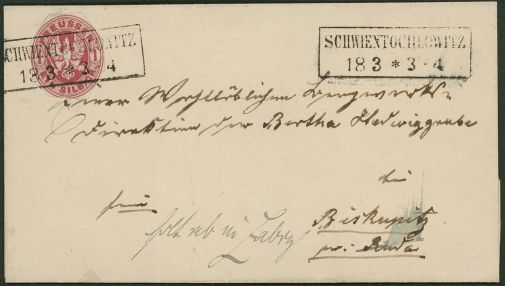 PREUSSEN
1 SILB.
SCHWIENTOCHLOWITZ
18 3 * 3-4
SCHWIENTOCHLOWITZ
18 3 * 3-4
Einer Wohllöblichen Bergwerks-
Direktion der Bertha Hedwiggrube
bei
frei
Biskupitz